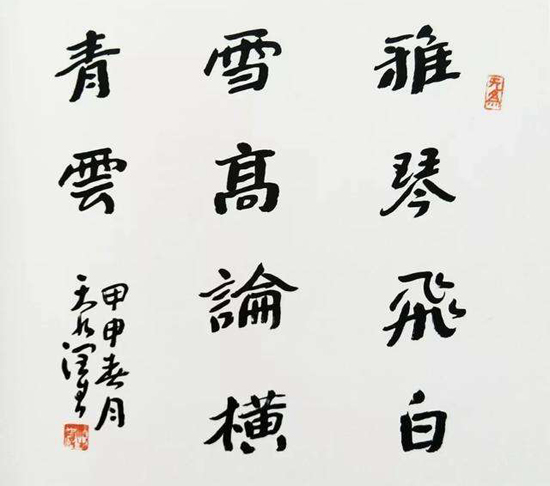 雅琴飛白
雪髙論橫
青雲
甲申春月
天水